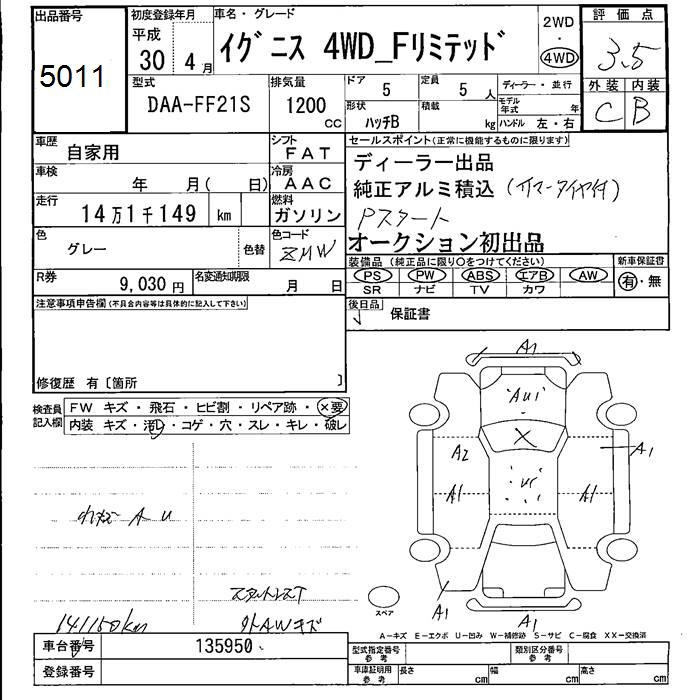 出品番号
5011
初度登録年月
平成
30 4 月
車名・グレード
ｲｸﾞﾆｽ 4WD_Fﾘﾐﾃｯﾄﾞ
2WD
・
4WD
評価点
3.5
外装 内装
C B
型式
DAA-FF21S
排気量
1200
CC
ドア
5
定員
5 人
形状
ﾊｯﾁB
積載
kg
ディーラー・並行
モデル
年式 年
ハンドル 左・右
車歴
自家用
シフト
FAT
車検
年 月( 日)
冷房
AAC
走行
14万1千149 km
燃料
ガソリン
色
グレー
色替
色コード
ZMW
R券
9,030 円
名変通知期限
月 日
セールスポイント(正常に機能するものに限ります)
ディーラー出品
純正アルミ積込
Pスタート
オークション初出品
装備品 (純正品に限り○をつけてください)
PS PW ABS エアB AW
SR ナビ TV カワ
新車保証書
有・無
後日品
保証書
注意事項申告欄(不具合内容等は具体的に記入して下さい)
修復歴 有〔箇所 〕
検査員
記入欄
FW キズ・飛石・ヒビ割・リペア跡・×要
内装 キズ・汚レ・コゲ・穴・スレ・キレ・破レ
A U
141150km
外AWキズ
A1
AU1
X
A2
A1
A1
A1
A1
A1
スペア
A－キズ E－エクボ U－凹み W－補修跡 S－サビ C－腐食 XX－交換済
車台番号
135950
登録番号
型式指定番号
参考
類別区分番号
参考
車庫証明用
参考
長さ cm
幅 cm
高さ cm